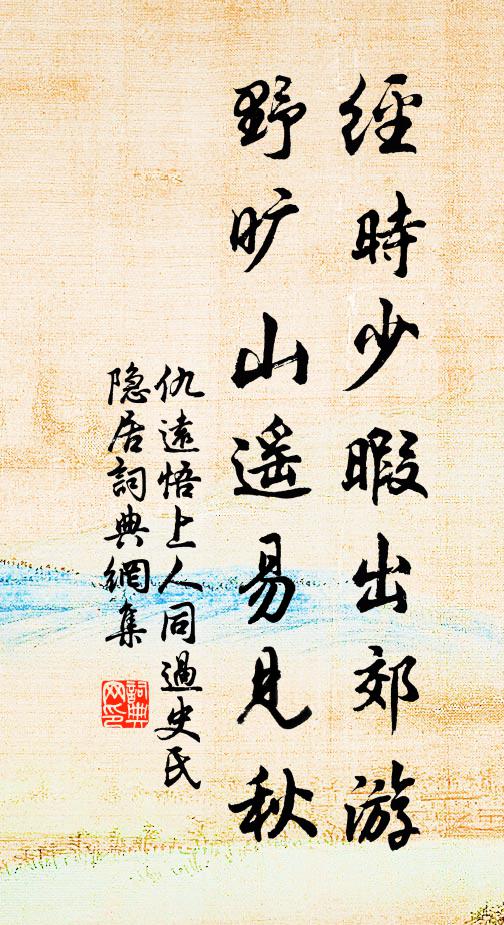 經時少暇出郊游
野旷山遥易見秋
仇遠悟上人同過史氏
隐居詞典網集
詞典网印